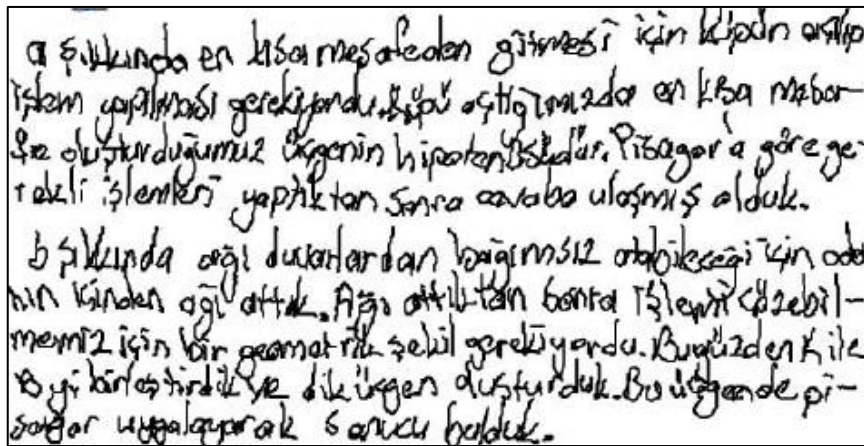 a şıkkında en kısa mesafeden gitmesi için küpün açılıp
işlem yapılması gerekiyordu. Küpü açtığımızda en kısa mesa-
fe oluşturduğumuz üçgenin hipotenüsüdür. Pisagor'a göre ge-
rekli işlemleri yaptıktan sonra cevaba ulaşmış olduk.
b şıkkında ağı duvarlardan bağımsız atabileceği için oda
nın içinden ağı attık. Ağı attıktan sonra işlemi çözebil-
memiz için bir geometrik şekil gerekiyordu. Bu yüzden K ile
B yi birleştirdik ve dik üçgen oluşturduk. Bu üçgende pi-
sagor uygulayarak sonucu bulduk.